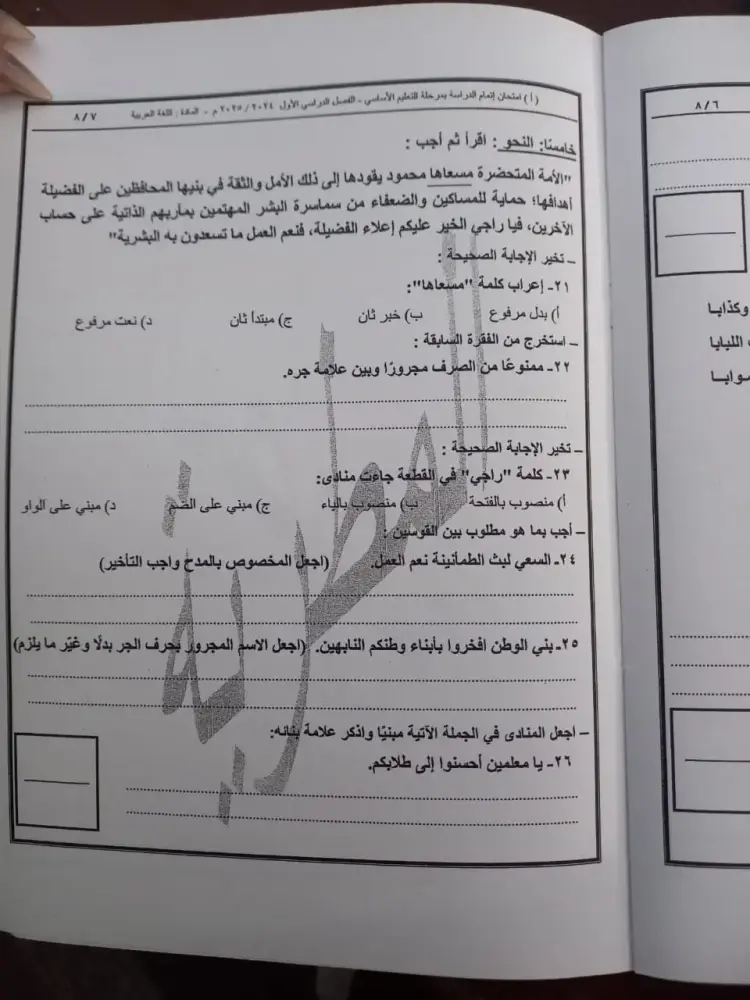 (أ) امتحان إتمام الدراسة بمرحلة التعليم الأساسي - الفصل الدراسي الأول ٢٠٢٤ / ٢٠٢٥ م - المادة: اللغة العربية ٨/٧
خامسًا: النحو: اقرأ ثم أجب:
"الأمة المتحضرة مسعاها محمود يقودها إلى ذلك الأمل والثقة في بنيها المحافظين على الفضيلة
أهدافها؛ حماية للمساكين والضعفاء من سماسرة البشر المهتمين بمآربهم الذاتية على حساب
الآخرين، فيا راجي الخير عليكم إعلاء الفضيلة، فنعم العمل ما تسعدون به البشرية"
ـ تخير الإجابة الصحيحة:
٢١- إعراب كلمة "مسعاها":
أ) بدل مرفوع ب) خبر ثان ج) مبتدأ ثان د) نعت مرفوع
ـ استخرج من الفقرة السابقة:
٢٢- ممنوعًا من الصرف مجرورًا وبين علامة جره.
ـ تخير الإجابة الصحيحة:
٢٣- كلمة "راجي" في القطعة جاءت منادى:
أ) منصوب بالفتحة ب) منصوب بالياء ج) مبني على الضم د) مبني على الواو
ـ أجب بما هو مطلوب بين القوسين:
٢٤- السعي لبث الطمأنينة نعم العمل. (اجعل المخصوص بالمدح واجب التأخير)
٢٥- بني الوطن افخروا بأبناء وطنكم النابهين. (اجعل الاسم المجرور بحرف الجر بدلًا وغيّر ما يلزم)
ـ اجعل المنادى في الجملة الآتية مبنيًا واذكر علامة بنائه:
٢٦- يا معلمين أحسنوا إلى طلابكم.
المطرية
٨/٦
وكذابا
اللبابا
صوابا